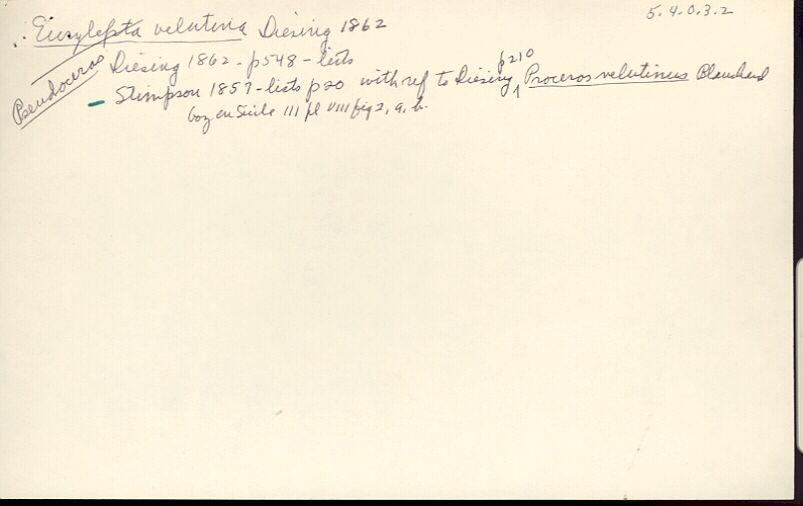 5.4.0.3.2
∴ Eurylepta velutina Diesing 1862
Pseudoceros
Diesing 1862 - p548 - lists
p210
– Stimpson 1857 - lists p20 with ref to Diesing ^ Proceros velutinus Blanchard
Voy en Sicile III pl VIII fig 2, a, b.